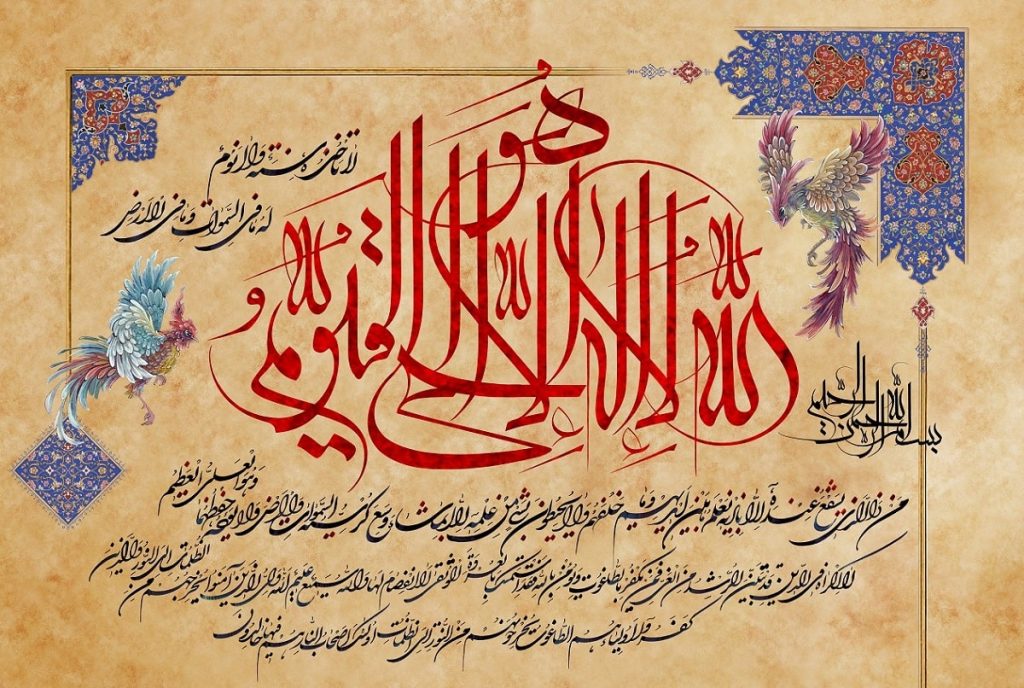 بسم الله الرحمن الرحيم
الله لا إله إلا هو الحي القيوم
لا تأخذه سنة ولا نوم
له ما في السموات وما في الارض
من ذا الذي يشفع عنده الا باذنه يعلم ما بين ايديهم وما خلفهم ولا يحيطون بشئ من علمه الا بما شاء وسع كرسيه السموات والارض ولا يؤده حفظهما
وهو العلي العظيم
لا اكراه في الدين قد تبين الرشد من الغي فمن يكفر بالطاغوت ويؤمن بالله فقد استمسك بالعروة الوثقى لا انفصام لها والله سميع عليم الله ولي الذين آمنوا يخرجهم من
الظلمات الى النور والذين
كفروا اولياؤهم الطاغوت يخرجونهم من النور الى الظلمات اولئك اصحاب النار هم فيها خالدون